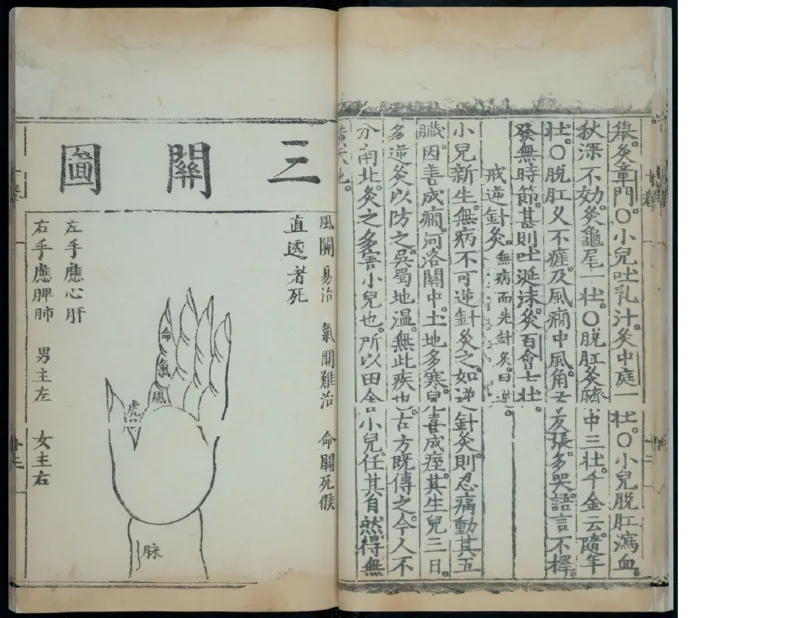 舉。灸章門。〇小兒吐乳汁。灸中庭一壯。〇小兒脫肛瀉血。
秋深不効。灸龜尾一壯。〇脫肛灸臍中三壯。千金云。隨年
壯。〇脫肛久不瘥。及風癇中風。角弓反張。多哭。語言不擇。
發無時節。甚則吐涎沫。灸百會七壯。
戒逆針灸。無病而先針灸。曰逆。
小兒新生。無病不可逆針灸之。如逆針灸則忍痛動其五
臟。因善成癇。河洛關中。土地多寒。兒喜成痓。其生兒三日。
多逆灸以防之。吳蜀地溫。無此疾也。古方既傳之。今人不
分南北。灸之多害小兒也。所以田舍小兒。任其自然。得無
橫夭也。
三關圖
風關易治 氣關難治 命關死候
直透者死
左手應心肝
右手應脾肺 男主左 女主右
命
氣
風
虎口
脉